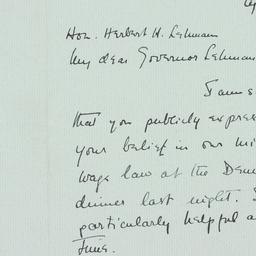 Hon. Herbert H. Lehman
My dear Governor Lehman
I am s
that you publicly expres
your belief in our mi
wage law at the Dem
dinner last night.
particularly helpful a
time.